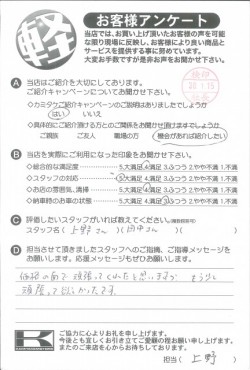 軽
お客様アンケート
当店では、お買い上げ頂いたお客様の声を可能
な限り現場に反映し、お客様により良い商品と
サービスを提供する事に努めています。
大変お手数ですが是非お声をお聞かせ下さい。
A 当店はご紹介を大切にしております。
ご紹介キャンペーンについてお聞かせ下さい
◇カミタケご紹介キャンペーンのご説明はありましたでしょうか
はい いいえ
◇具体的にご紹介頂ける方とのご関係をお聞かせ頂けますでしょうか
ご親族 ご友人 職場の方 機会があれば紹介したい
B 当店を実際にご利用になった印象をお聞かせ下さい。
◇総合的な満足度 5.大満足 4.満足 3.ふつう 2.やや不満 1.不満
◇スタッフの対応 5.大満足 4.満足 3.ふつう 2.やや不満 1.不満
◇お店の雰囲気、清掃 5.大満足 4.満足 3.ふつう 2.やや不満 1.不満
◇納車時のお車の状態 5.大満足 4.満足 3.ふつう 2.やや不満 1.不満
C 評価したいスタッフがいれば教えてください。(複数回答可)
スタッフ名( 上野さん )( 田中さん )
D 担当させて頂きましたスタッフへのご指摘、ご指導メッセージを
お願いします。応援メッセージもぜひお願いします。
価格の面で頑張ってくれたと思いますが、もう少し
頑張ってほしかったです。
ご協力に心よりお礼を申し上げます。
今後とも宜しくお引き立てご愛顧の程お願い申し上げます。
またのご来店を心からお待ちしております。
担当( 上野 )